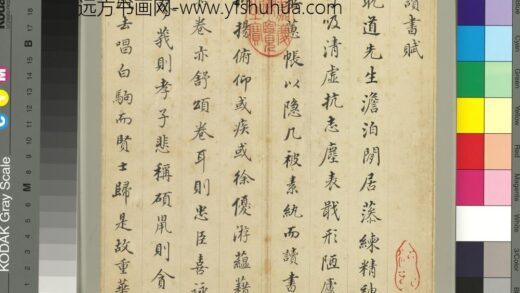 远方书画网-www.yfshuhua.com
讀書賦
耽道先生澹泊閒居藻練精神
吸清虛抗志塵表戢形陋廬
蕙帳以隱几被素紈而讀書
揚俯仰或疾或徐優游蘊藉
卷亦舒頌卷耳則忠臣喜詠
莪則孝子悲稱碩鼠則貪
去唱白駒而賢士歸是故重華
KODAK Gray Scale
C Y M
R
G
B
M
Cyan
Green
Yellow
Red
Magenta
3/Color
Black